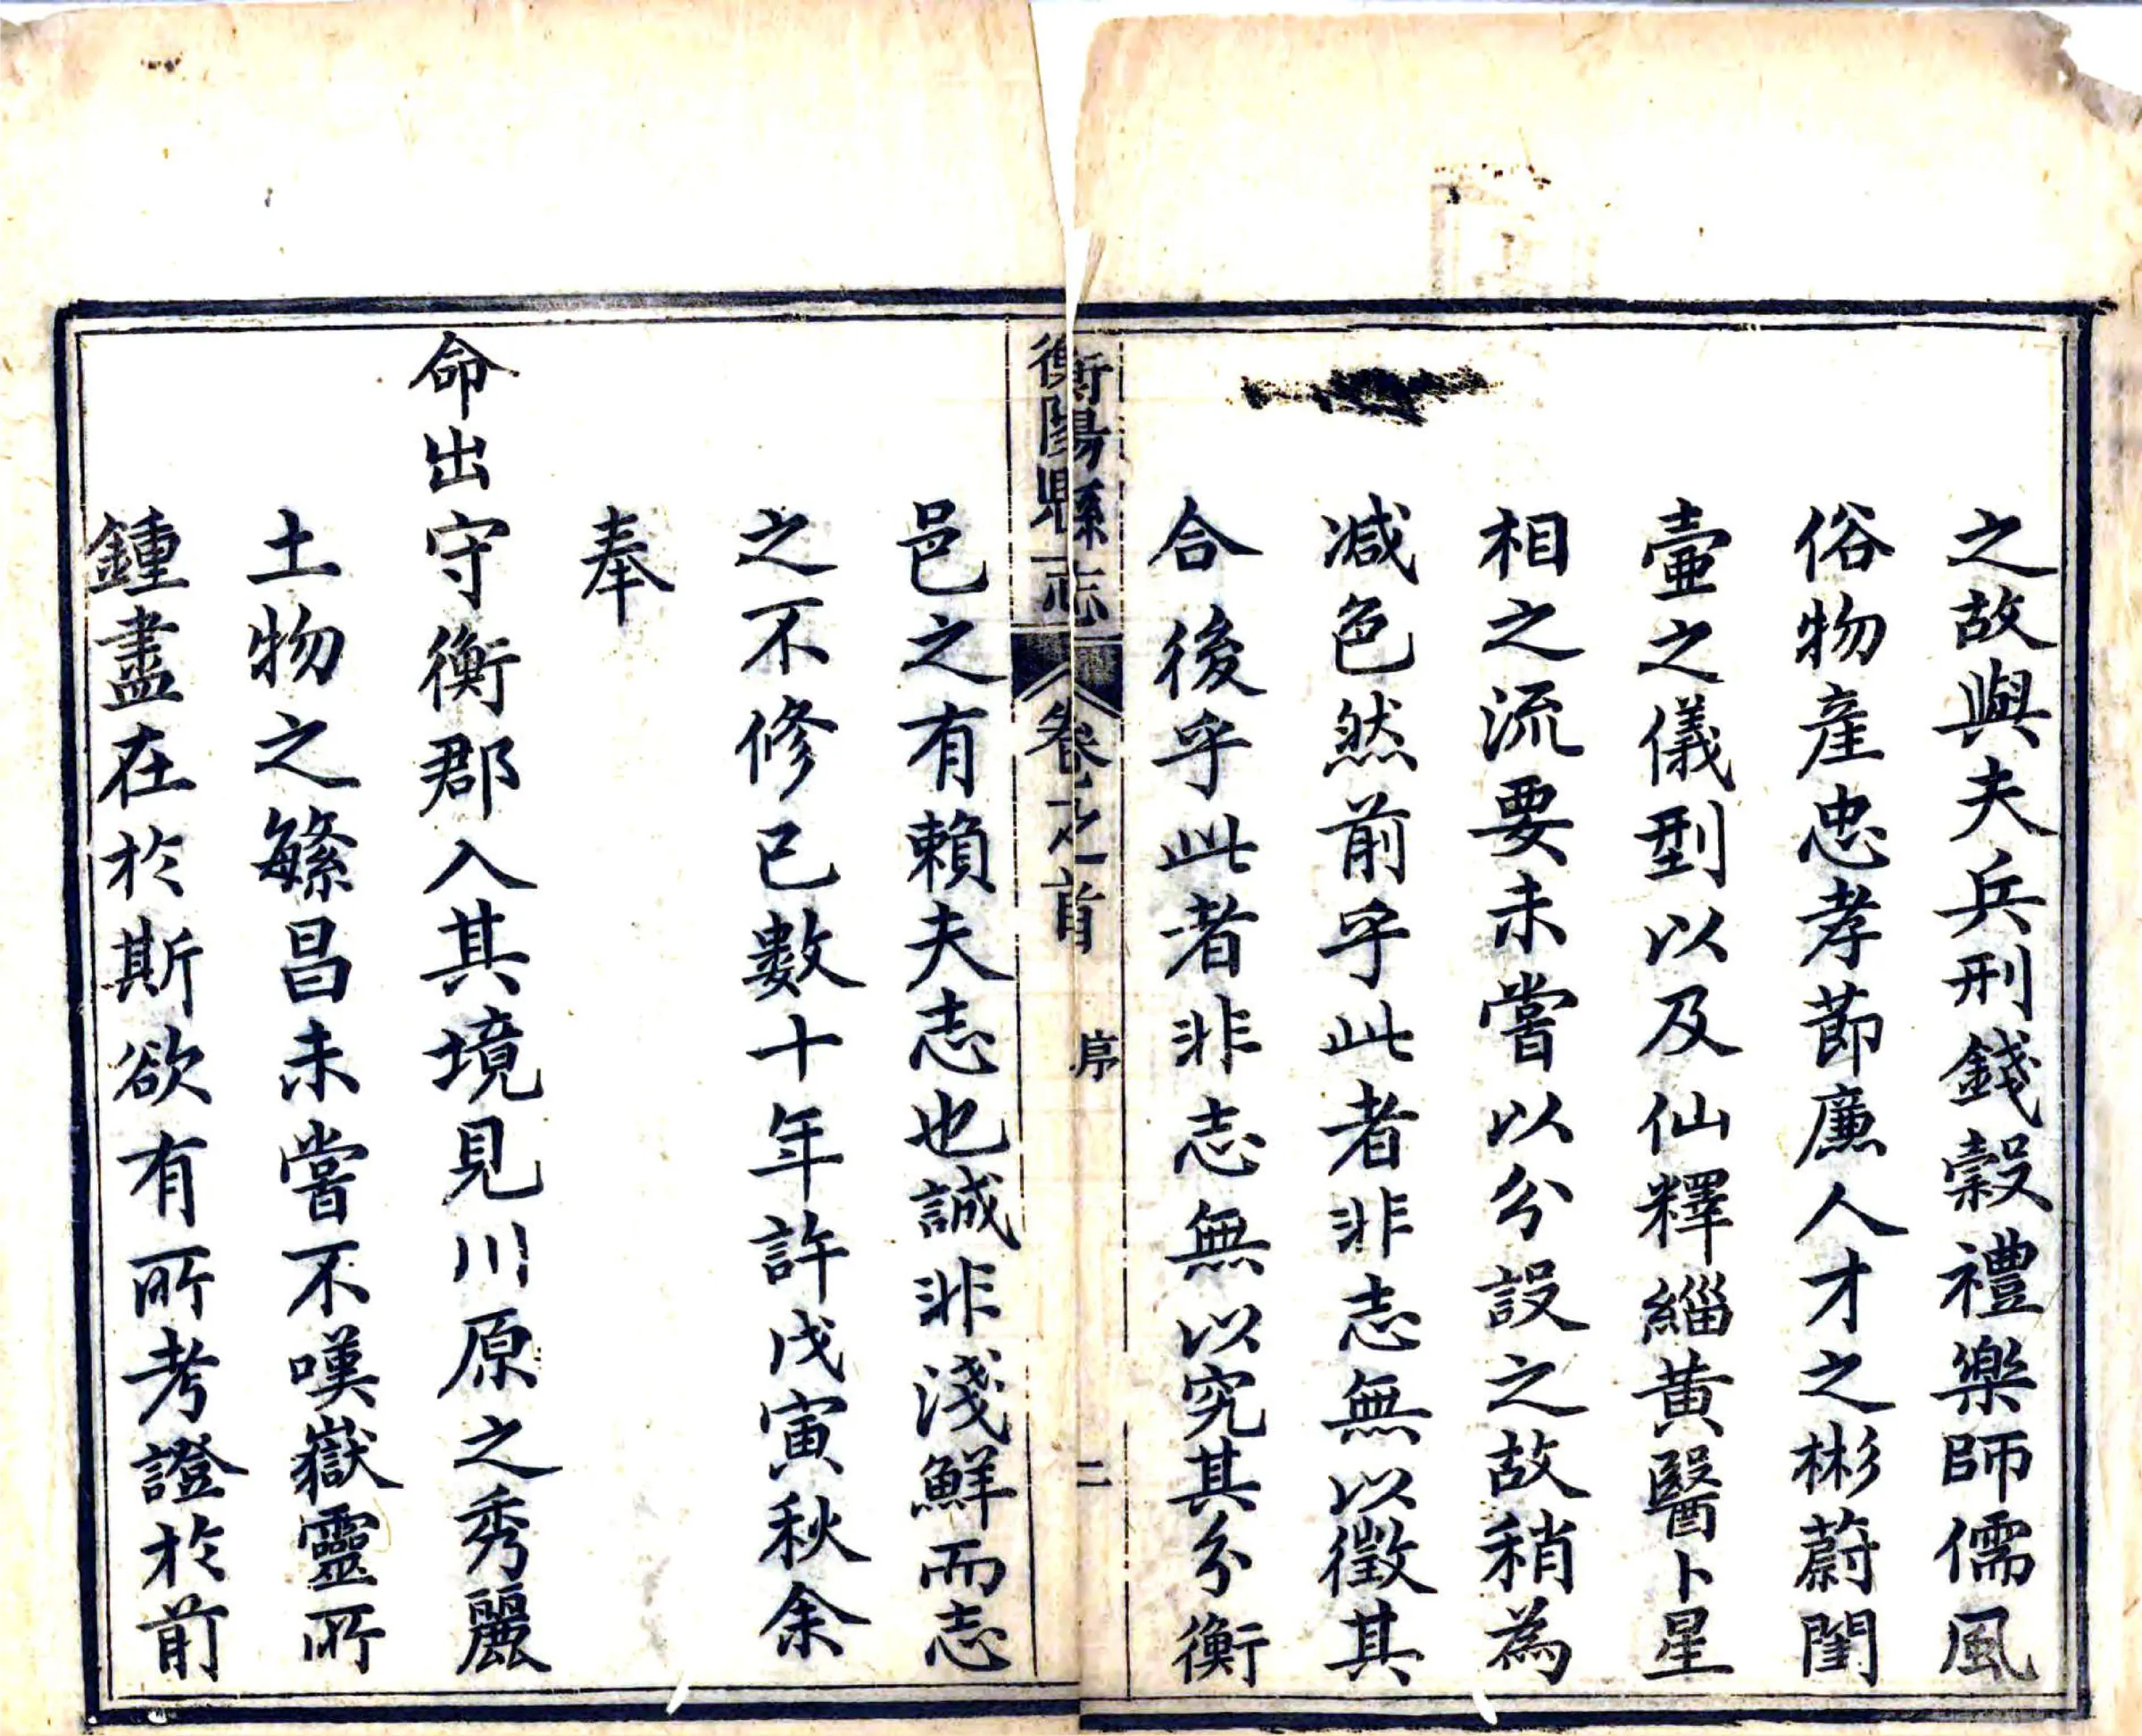 之故與夫兵刑錢穀禮樂師儒風
俗物產忠孝節廉人才之彬蔚閨
壼之儀型以及仙釋緇黃醫卜星
相之流要未嘗以分設之故稍為
減色然前乎此者非志無以徵其
合後乎此者非志無以究其分衡
衡陽縣志 卷之首 序 二
邑之有賴夫志也誠非淺鮮而志
之不修已數十年許戊寅秋余
奉
命出守衡郡入其境見川原之秀麗
土物之繁昌未嘗不嘆嶽靈所
鍾盡在於斯欲有所考證於前